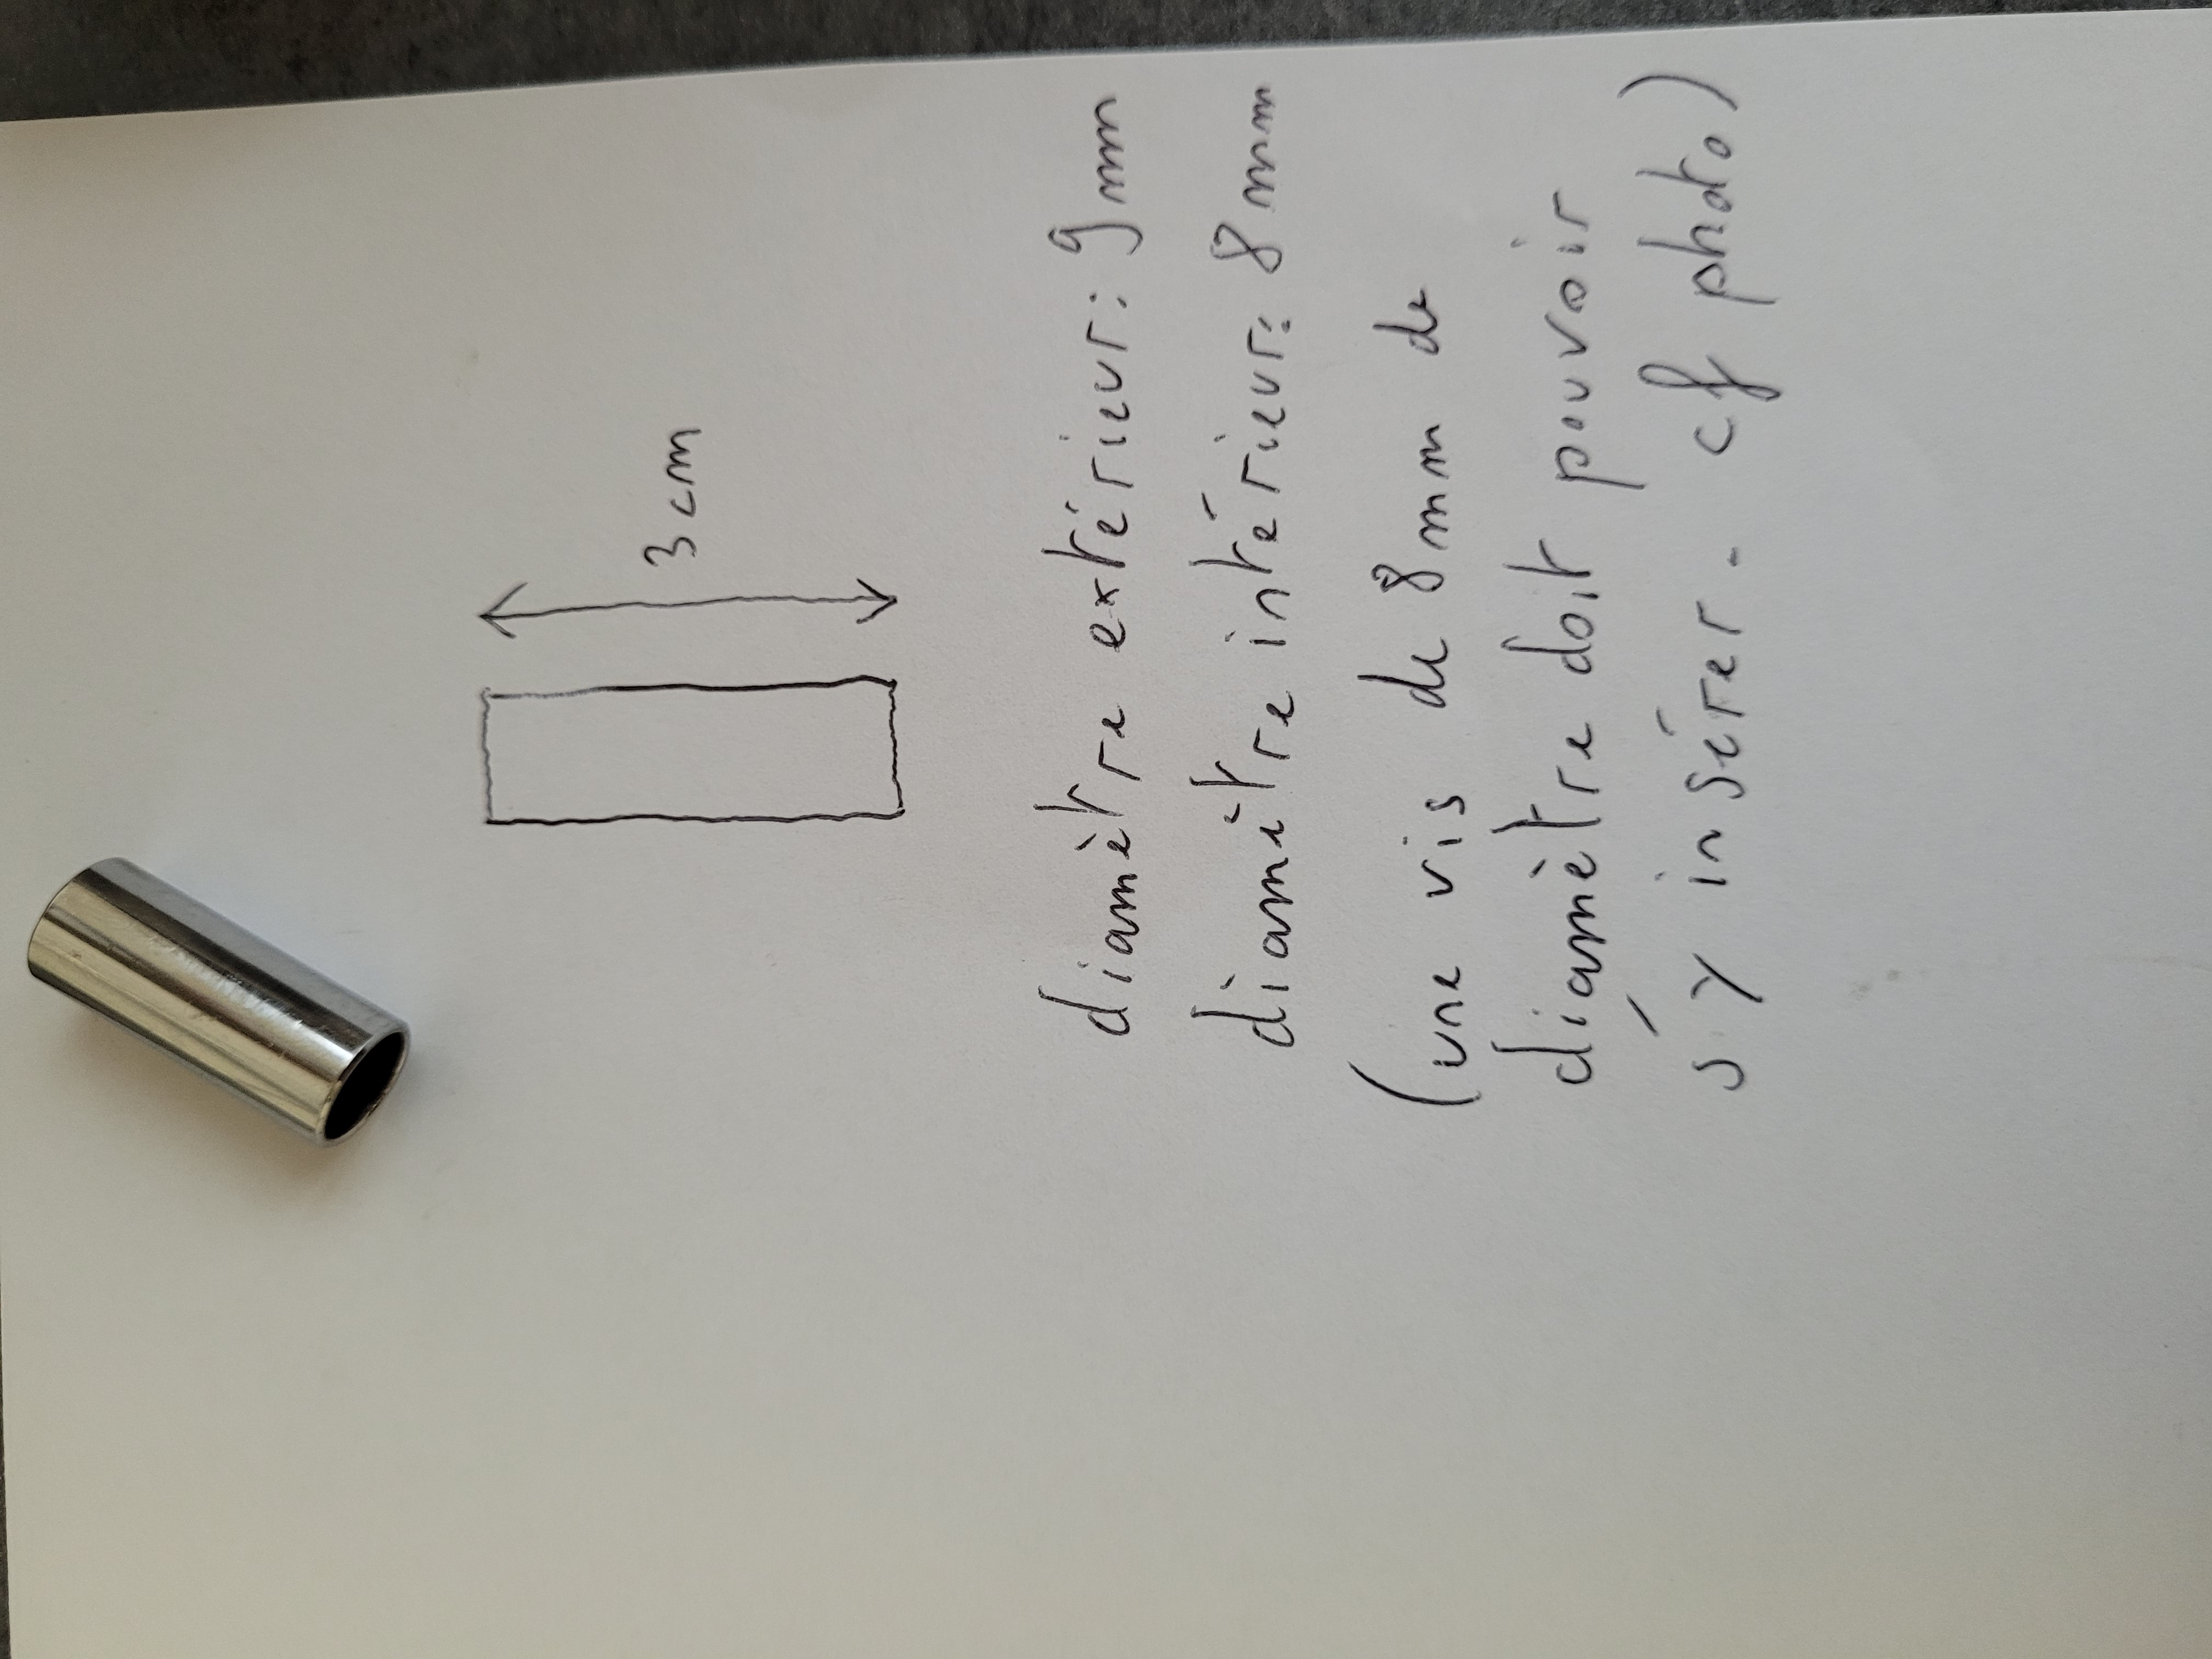 3 cm
diamètre extérieur: 9 mm
diamètre intérieur: 8 mm
(une vis de 8 mm de
diamètre doit pouvoir
s'y insérer. cf photo)